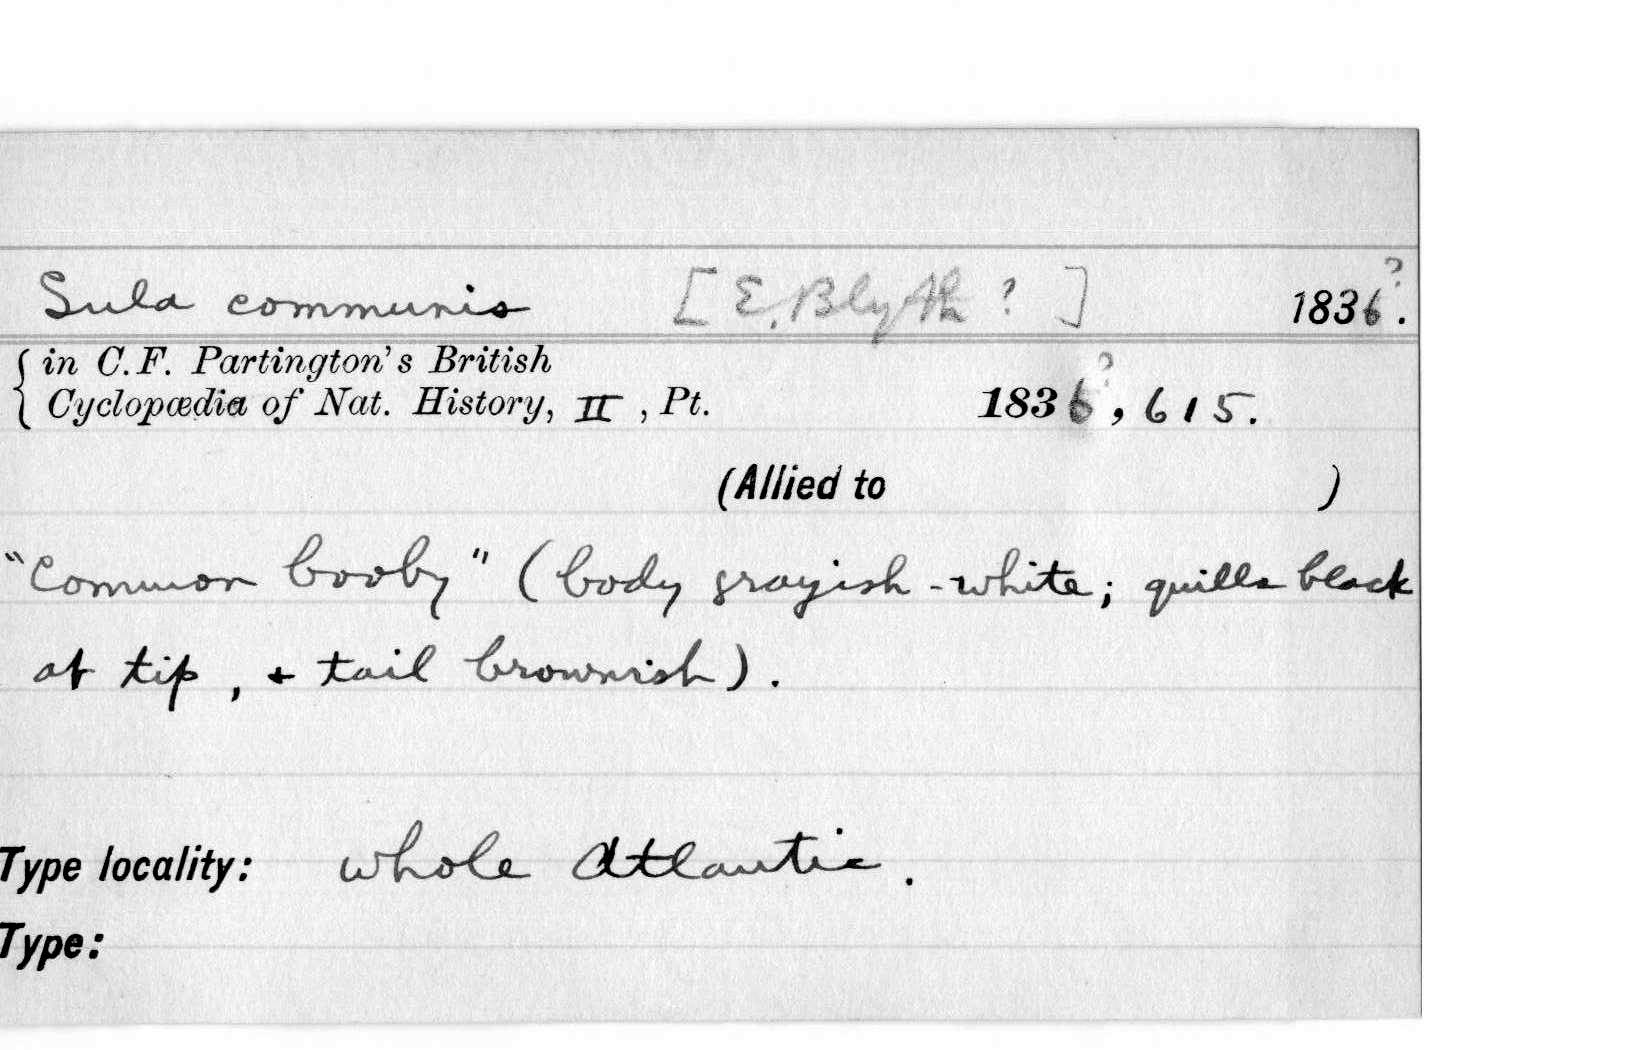 Sula communis [E. Blyth ? ] 1836?.
in C.F. Partington's British
Cyclopædia of Nat. History, II , Pt. 1836?, 615.
(Allied to )
"Common booby" (body grayish-white; quills black
at tip, + tail brownish).
Type locality: whole Atlantic.
Type: